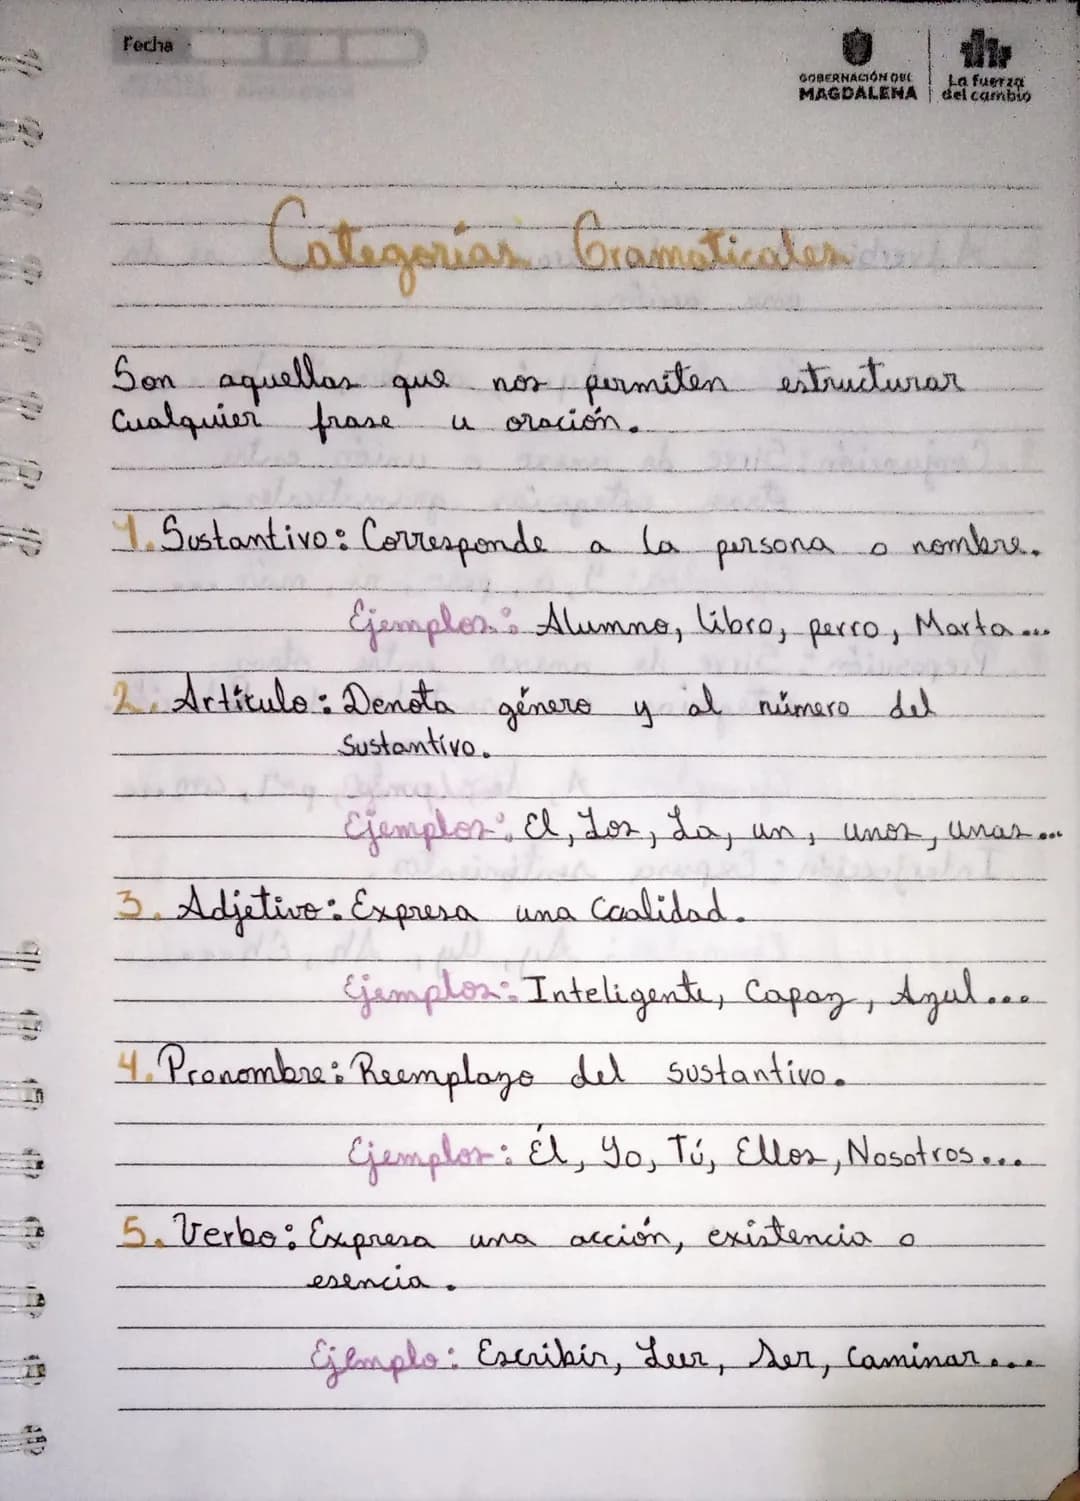 Fecha
GOBERNACIÓN DEL
MAGDALENA
La fuerza
del cambio
Categorías Gramaticales
Son aquellas que nos permiten estructurar
Cualquier frase u oración.
1. Sustantivo: Corresponde a la persona o nombre.
Ejemplos: Alumno, libro, perro, Marta...
2. Artículo: Denota género y al número del
Sustantivo.
Ejemplos: El, Los, La, un, unos, unas...
3. Adjetivo: Expresa una Caalidad.
Ejemplos: Inteligente, Capaz, Azul...
4. Pronombre: Reemplazo del sustantivo.
Ejemplos: Él, Yo, Tú, Ellos, Nosotros...
5. Verbo: Expresa una acción, existencia o
esencia.
Ejemplo: Escribir, Leer, Ser, Caminar...